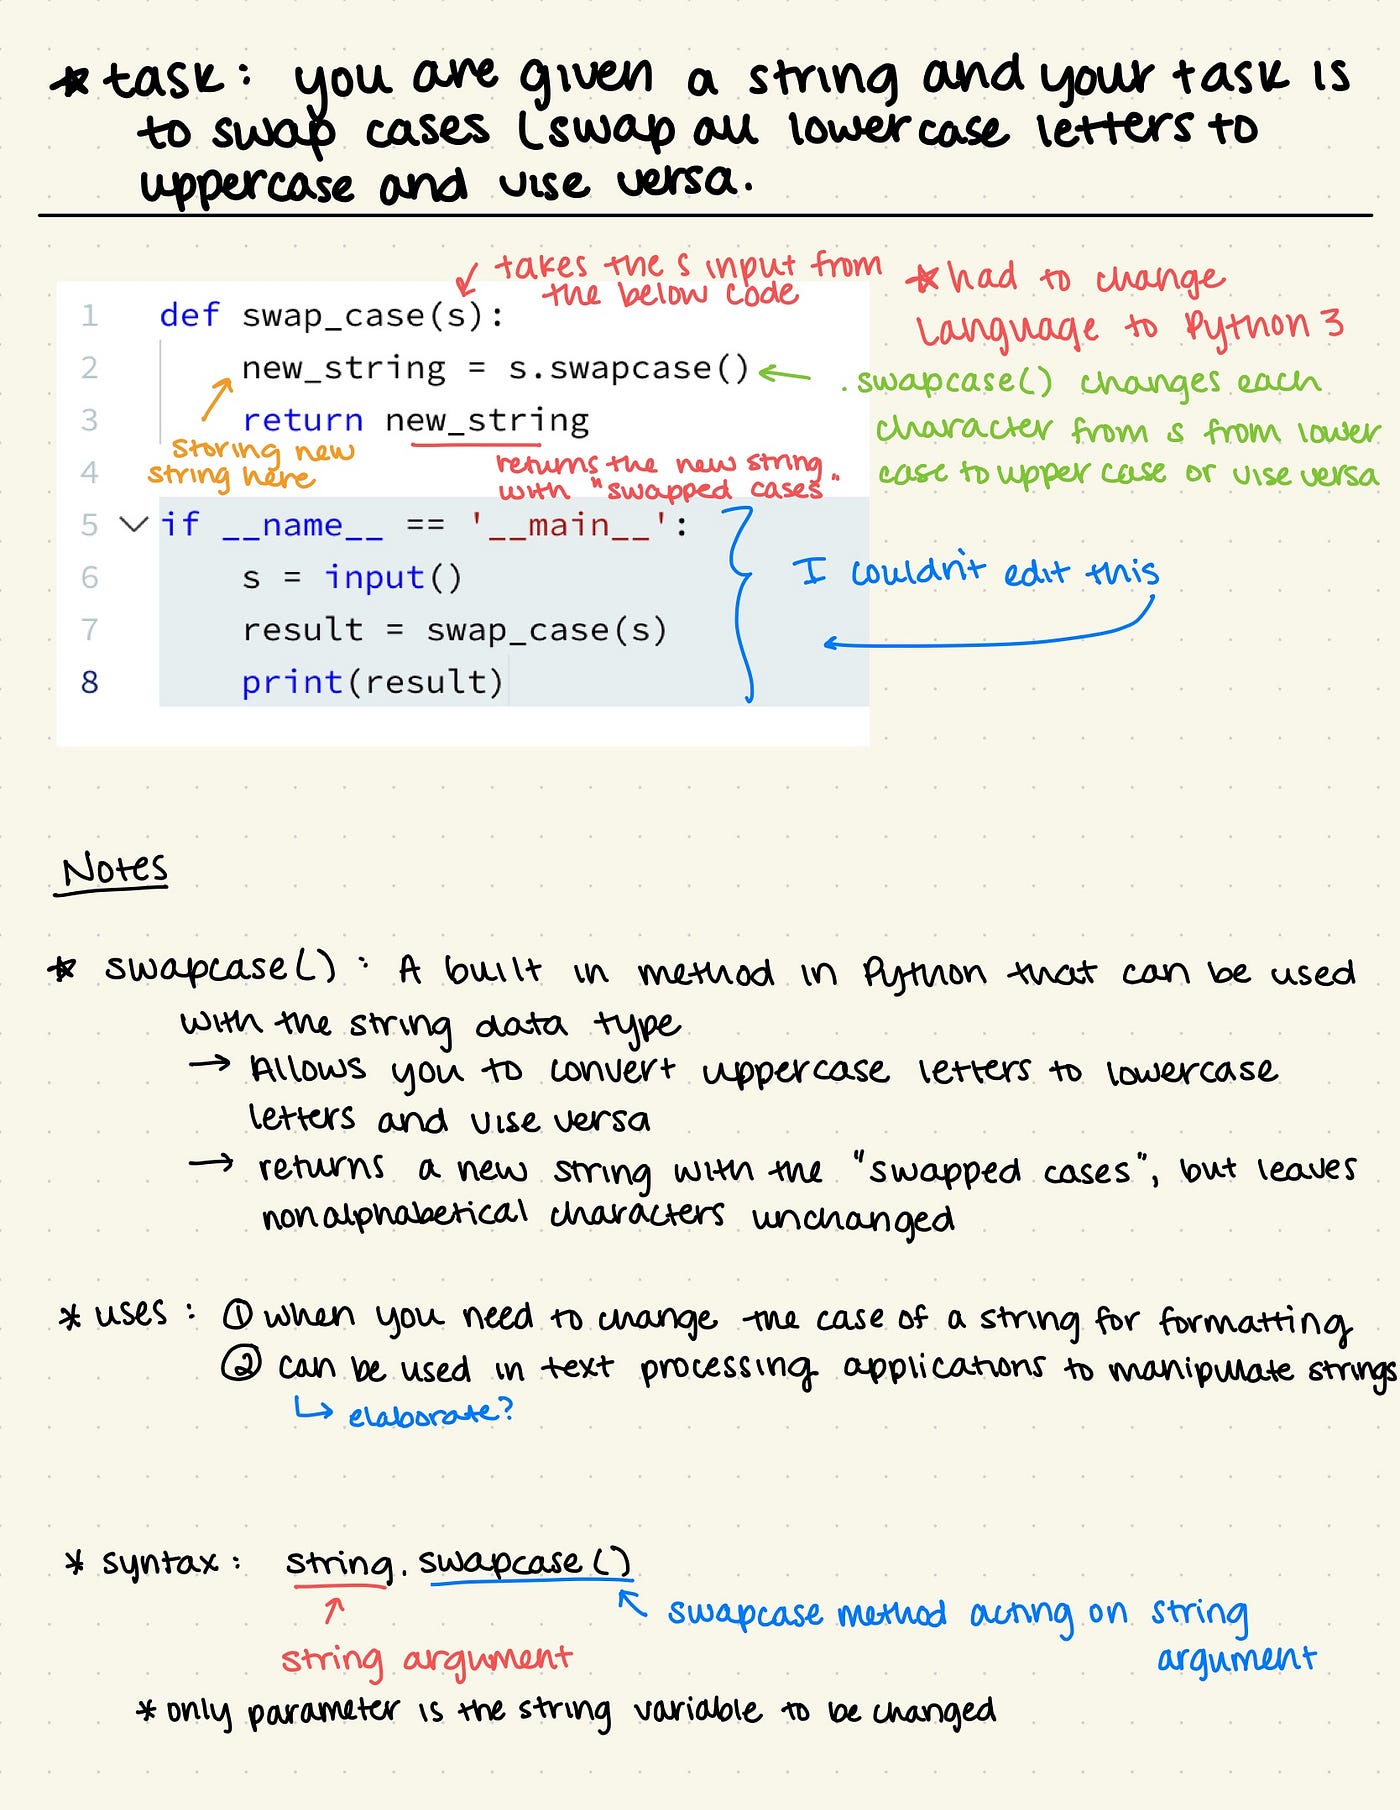 * task: you are given a string and your task is
to swap cases (swap all lowercase letters to
uppercase and vise versa.
takes the s input from
the below code
* had to change
language to Python 3
1 def swap_case(s):
2 new_string = s.swapcase()
.swapcase() changes each
character from s from lower
case to upper case or vise versa
3 return new_string
storing new
string here
returns the new string
with "swapped cases"
4
5 if __name__ == '__main__':
6 s = input()
7 result = swap_case(s)
8 print(result)
I couldn't edit this
Notes
* swapcase(): A built in method in Python that can be used
with the string data type
→ Allows you to convert uppercase letters to lowercase
letters and vise versa
→ returns a new string with the "swapped cases", but leaves
nonalphabetical characters unchanged
* uses: ① when you need to change the case of a string for formatting
② can be used in text processing applications to manipulate strings
↳ elaborate?
* syntax: string.swapcase()
swapcase method acting on string
argument
string argument
* only parameter is the string variable to be changed